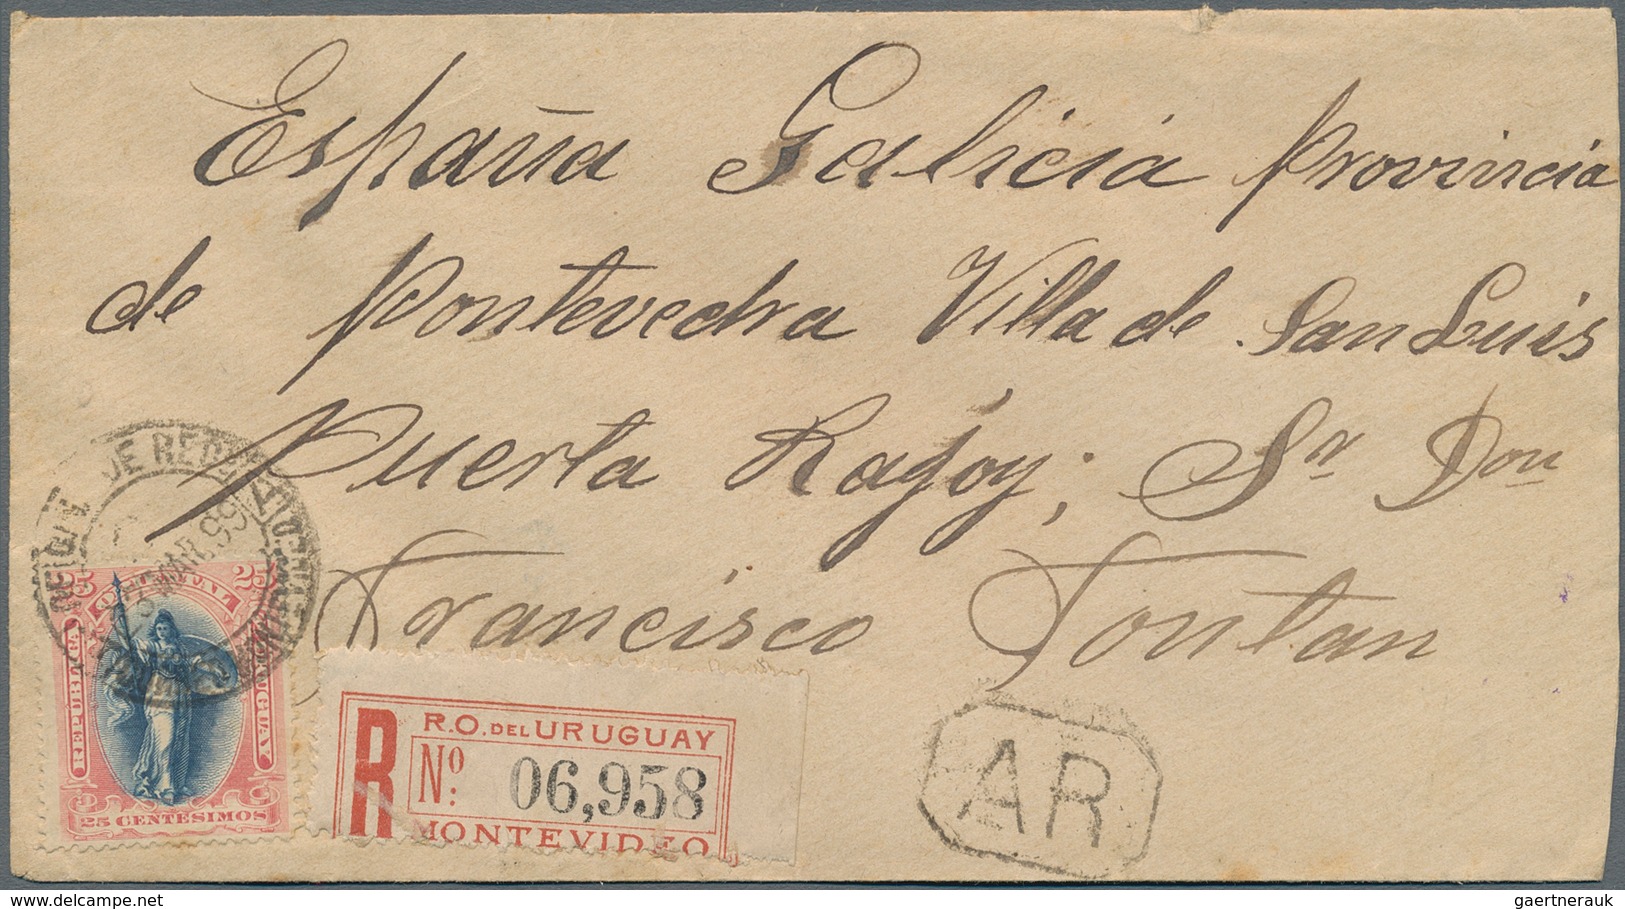 España Galicia Provincia
de Pontevedra Villa de San Luis
Puerta Rajoy; Sr Don
Francisco Fontan
MAR.99
25 25
REPUBLICA O. DEL URUGUAY
25 CENTESIMOS
R
R.O. DEL URUGUAY
Nº. 06,958
MONTEVIDEO
AR
gaertnerauk